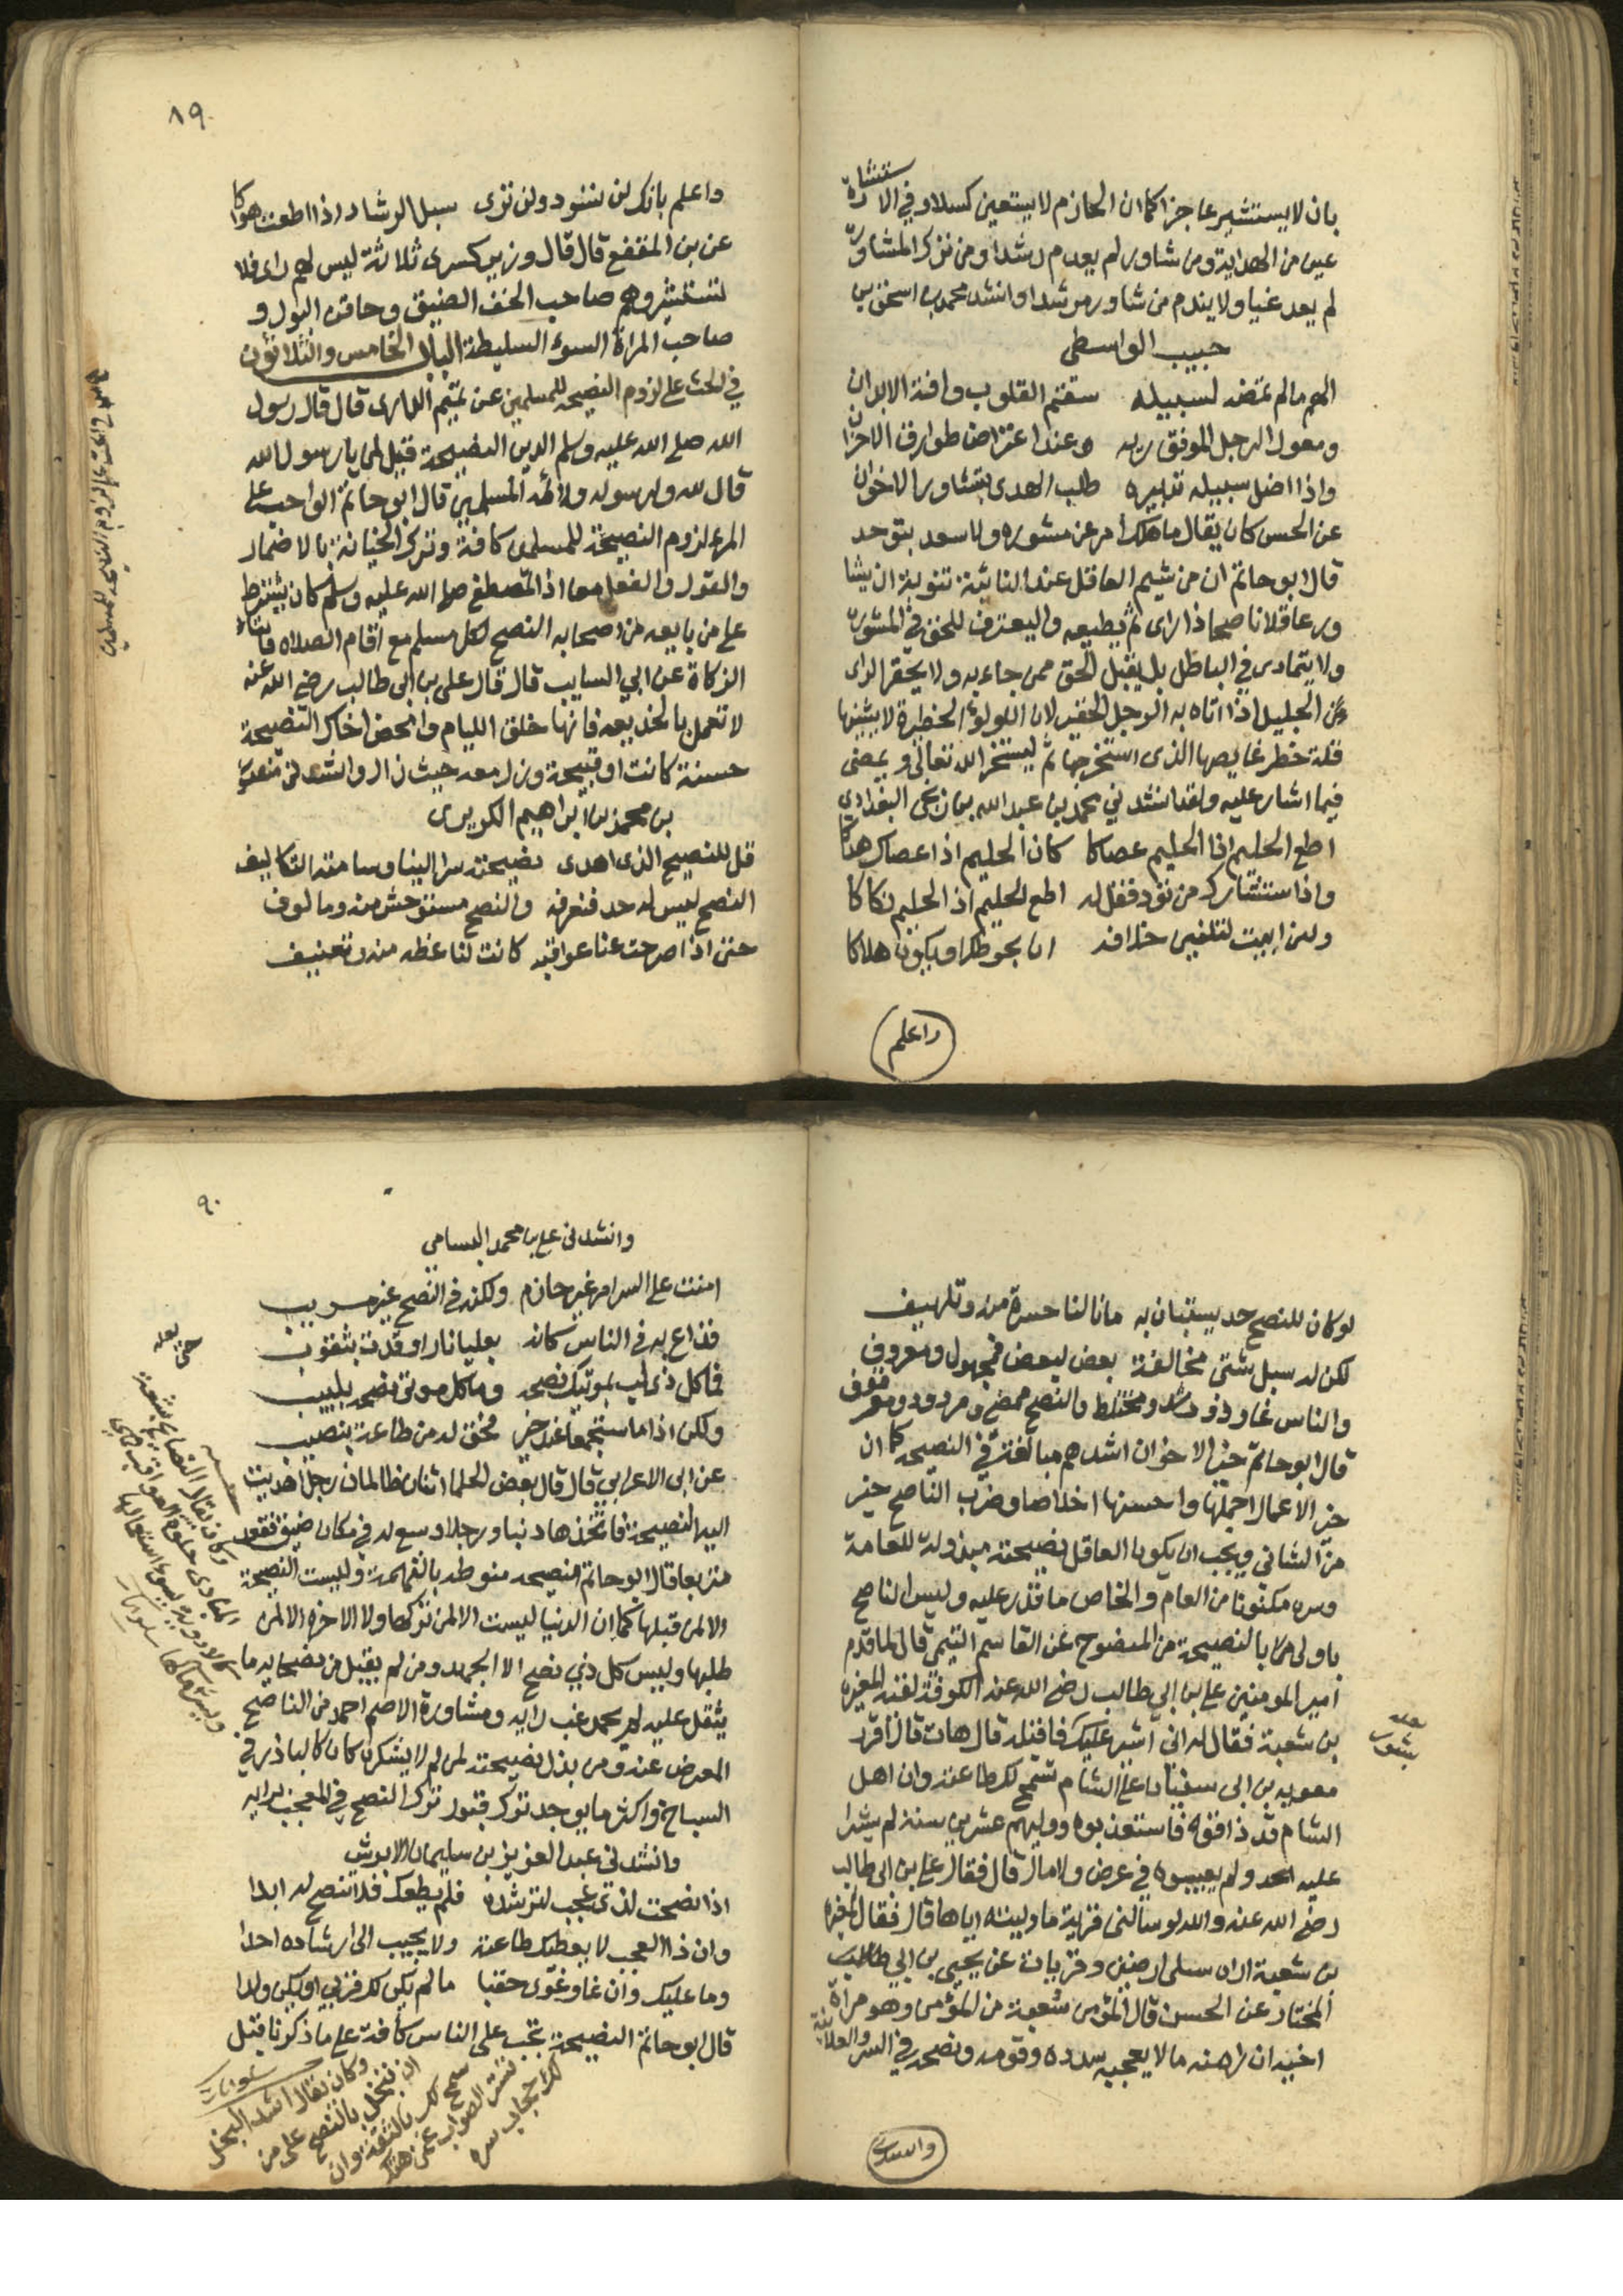 بان لا يستشير عاجزا كما ان الحازم لا يستعين كسلا وفي الاستشارة
عين من الهداية ومن شاور لم يعدم رشدا ومن ترك المشاورة
لم يعد غيا ولا يندم من شاور مرشدا وانشد محمد بن اسحق بن
حبيب الواسطي
الهم مالم تمضه لسبيله سقم القلوب وافة الابدان
ومعول الرجل الموفق ربه وعند اعتراض طوارق الاحزان
واذا اضل سبيله تدبيره طلب الهدى بتشاور الاخوان
عن الحسن كان يقال ما هلك امر عن مشوره ولا سعد بتوحد
قال ابو حاتم ان من شيم العاقل عند النائبة تنوبة ان يشا
ور عاقلا ناصحا ذا راى ثم يطيعه واليعترف للحق في المشورة
ولا يتمادى في الباطل بل يقبل الحق ممن جاء به ولا يحقر الراى
الجليل اذا اتاه به الرجل الحقير لان اللولوة الخطيرة لا يشينها
قلة خطر غايصها الذى استخرجها ثم ليستخر الله تعالى ويمضى
فيما اشار عليه ولقد انشدني محمد بن عبد الله بن زنجى البغدادي
اطع الحليم اذا الحليم عصاكا كان الحليم اذا عصاك هداكا
واذا ستشارك من تود فقل له اطع الحليم اذ الحليم نهاكا
ولئن ابيت لتلفين خلافه ويكون هلاكا
واعلم
٨٩
واعلم بانك لن تسود ولن ترى سبل الرشاد اذا اطعت هواكا
عن بن المقفع قال قال وزير كسرى ثلاثة ليس لهم راى فلا
تستشيروهم صاحب الخف الضيق وحاقن البول و
صاحب المراة السوء السليطة الباب الخامس والثلاثون
في الحث على لزوم النصيحه للمسلمين عن تميم الدارى قال قال رسول
الله صلى الله عليه وسلم الدين النصيحة قيل لمن يا رسول الله
قال لله ولرسوله ولائمة المسلمين قال ابو حاتم الواجب على
المرء لزوم النصيحة للمسلمين كافة وترك الخيانة بالاضمار
والقول والفعل معا اذ المصطفى صلى الله عليه وسلم كان يشترط
على من بايعه من اصحابه النصح لكل مسلم مع اقام الصلاه وايتاء
الزكاة عن ابي السايب قال قال على بن ابى طالب رضى الله عنه
لا تعمل بالخديعه فانها خلق الليام وامحض اخاك النصيحة
حسنة كانت او قبيحة وزل معه حيث زال وانشدنى منصور
بن محمد بن ابراهيم الكريزى
قل للنصيح الذى اهدى نصيحته سرا الينا وسامته التكاليف
النصح ليس له حد فنعرفه والنصح مستوحش منه ومالوف
حتى اذا صرحت عنا عواقبه كانت لنا عظه منه وتعنيف
في الحث على لزوم النصيحه للمسلمين
لو كان للنصح حد يستبان به ما نالنا حسرة منه وتلهيف
لكن له سبل شتى مخالفة بعض لبعض فمجهول ومعروف
والناس غاو وذو رشد ومختلط والنصح ممضى ومردود وموقوف
قال ابو حاتم خير الاخوان اشدهم مبالغة في النصيحه كما ان
خير الاعمال اجملها واحسنها اخلاصا وضرب الناصح خير
من الشانى ويجب ان يكون العاقل نصيحته مبذولة للعامة
وسره مكتوما من العام والخاص ما قدر عليه وليس الناصح
باولى بالنصيحة من المنصوح عن القاسم التيمي قال لما قدم
امير المومنين على بن ابى طالب رضى الله عنه الكوفة لقيه المغيرة
بن شعبة فقال له انى اشير عليك فاقبله قال هات قال اقرر
معويه بن ابى سفيان على الشام تسمح لك طاعته وان اهل
الشام قد ذاقوه فاستعذبوه ووليهم عشرين سنة لم يشدا
عليه احد ولم يعيبوه في عرض ولا مال قال فقال على بن ابى طالب
رضى الله عنه والله لو سالنى قرية ما وليته اياها قال فقال المغيرة
بن شعبة اراه سيلى ارضين وقريات عن يحيى بن ابى طالب
المختار عن الحسن قال المؤمن شعبة من المؤمن وهو مراة
اخيه ان راى منه ما لا يعجبه سدده وقومه ونصحه في السر والعلانية
وانشدنى
٩٠
وانشدنى على بن محمد البسامي
امنت على السر امر غير حازم ولكنه في النصح غير مريب
فذاع به في الناس كانه بعليا نار اوقدت بثقوب
فما كل ذى لب بموتيك نصحه وما كل موتى نصحه بلبيب
ولكن اذا ما ستجمعا عند فحق له من طاعة بنصيب
عن ابن الاعرابي قال قال بعض الحكما اثنان ظالمان رجل اهديت
اليه النصيحة فاتخذها ذنبا ورجل وسع له في مكان ضيق فقعد
متربعا قال ابو حاتم النصيحه منوطه بالتهمة وليست النصيحة
الا لمن قبلها كما ان الدنيا ليست الا لمن تركها ولا الاخره الا لمن
طلبها وليس كل ذى نصح الا الجهد ومن لم يقبل من نصحايه ما
يثقل عليه لم يحمد غب رايه ومشاورة الاصم احمد من الناصح
المعرض عنه ومن بذل نصيحته لمن لم لا يشكر كان كالباذر في
السباخ واكثر ما يوجد ترك قبول ترك النصح في المعجب برايه
وانشدنى عبد العزيز بن سليمان الابرش
اذا نصحت لذى عجب لترشده فلم يطعك فلا تنصح له ابدا
وان ذا العجب لا يعطيك طاعته ولا يجيب الى ارشاده احدا
وما عليك وان غاو غوى حقبا ما لم يكن لك قربى او يكن ولدا
قال ابو حاتم النصيحة تجب على الناس كافة على ما ذكرنا قبل
وكان يقال اشد البخل
ان تبخل بالنصح على من
سمح لك بالثقة وان
تستر الصواب عمن هتك
لك حجاب سره